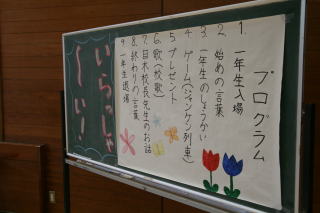 プログラム
1. 一年生入場
2. 始めの言葉
3. 一年生のしょうかい
4. ゲーム(ジャンケン列車)
5 プレゼント
6. 歌(校歌)
7. 目木校長先生のお話
8. 終わりの言葉
9. 一年生退場
いらっしゃ
〜い!